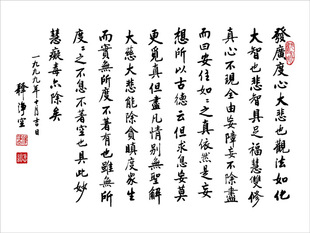 發廣度心大悲也觀法如化
大智也悲智具足福慧雙修
真心不現全由妄障妄不除盡
而曰安住如之真依然是妄
想所以古德云但求息妄莫
更覓真但盡凡情別無聖解
大慈大悲能除貪瞋度眾生
而實無所度不著有也雖無所
度之不息不著空也具此妙
慧癡毒亦除矣
一九九九年十月吉日
釋淨空